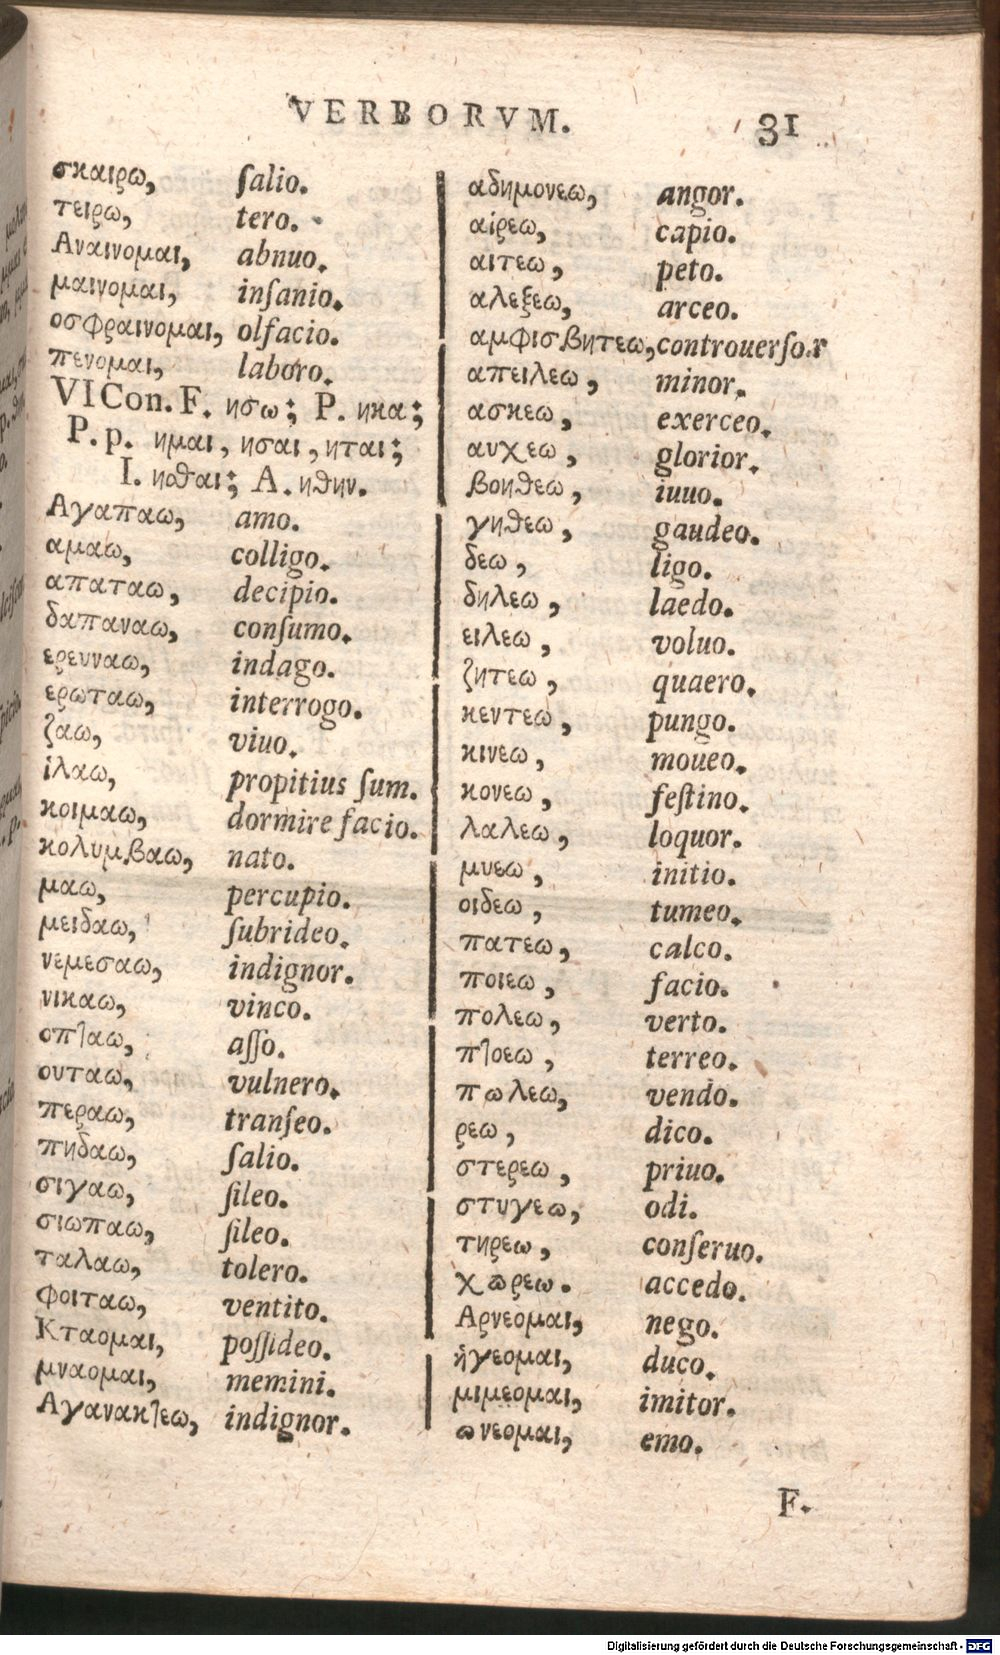 VERBORVM. 31
σκαιρω, ſalio.
τειρω, tero.
Αναινομαι, abnuo.
μαινομαι, inſanio.
οσφραινομαι, olfacio.
πενομαι, laboro.
VI Con. F. ησω; P. ηκα;
P. p. ημαι, ησαι, ηται;
I. ηϑαι; A. ηϑην.
Αγαπαω, amo.
αμαω, colligo.
απαταω, decipio.
δαπαναω, conſumo.
ερευναω, indago.
ερωταω, interrogo.
ζαω, viuo.
ἱλαω, propitius ſum.
κοιμαω, dormire facio.
κολυμβαω, nato.
μαω, percupio.
μειδαω, ſubrideo.
νεμεσαω, indignor.
νικαω, vinco.
οπταω, aſſo.
ουταω, vulnero.
περαω, tranſeo.
πηδαω, ſalio.
σιγαω, ſileo.
σιωπαω, ſileo.
ταλαω, tolero.
φοιταω, ventito.
Κταομαι, poſſideo.
μναομαι, memini.
Αγανακτεω, indignor.
αδημονεω, angor.
αἱρεω, capio.
αιτεω, peto.
αλεξεω, arceo.
αμφισβητεω, controuerſor
απειλεω, minor.
ασκεω, exerceo.
αυχεω, glorior.
βοηϑεω, iuuo.
γηϑεω, gaudeo.
δεω, ligo.
δηλεω, laedo.
ειλεω, voluo.
ζητεω, quaero.
κεντεω, pungo.
κινεω, moueo.
κονεω, feſtino.
λαλεω, loquor.
μυεω, initio.
οιδεω, tumeo.
πατεω, calco.
ποιεω, facio.
πολεω, verto.
πτοεω, terreo.
πωλεω, vendo.
ρεω, dico.
στερεω, priuo.
στυγεω, odi.
τηρεω, conſeruo.
χωρεω. accedo.
Αρνεομαι, nego.
ἡγεομαι, duco.
μιμεομαι, imitor.
ωνεομαι, emo.
F.
Digitalisierung gefördert durch die Deutsche Forschungsgemeinschaft - DFG